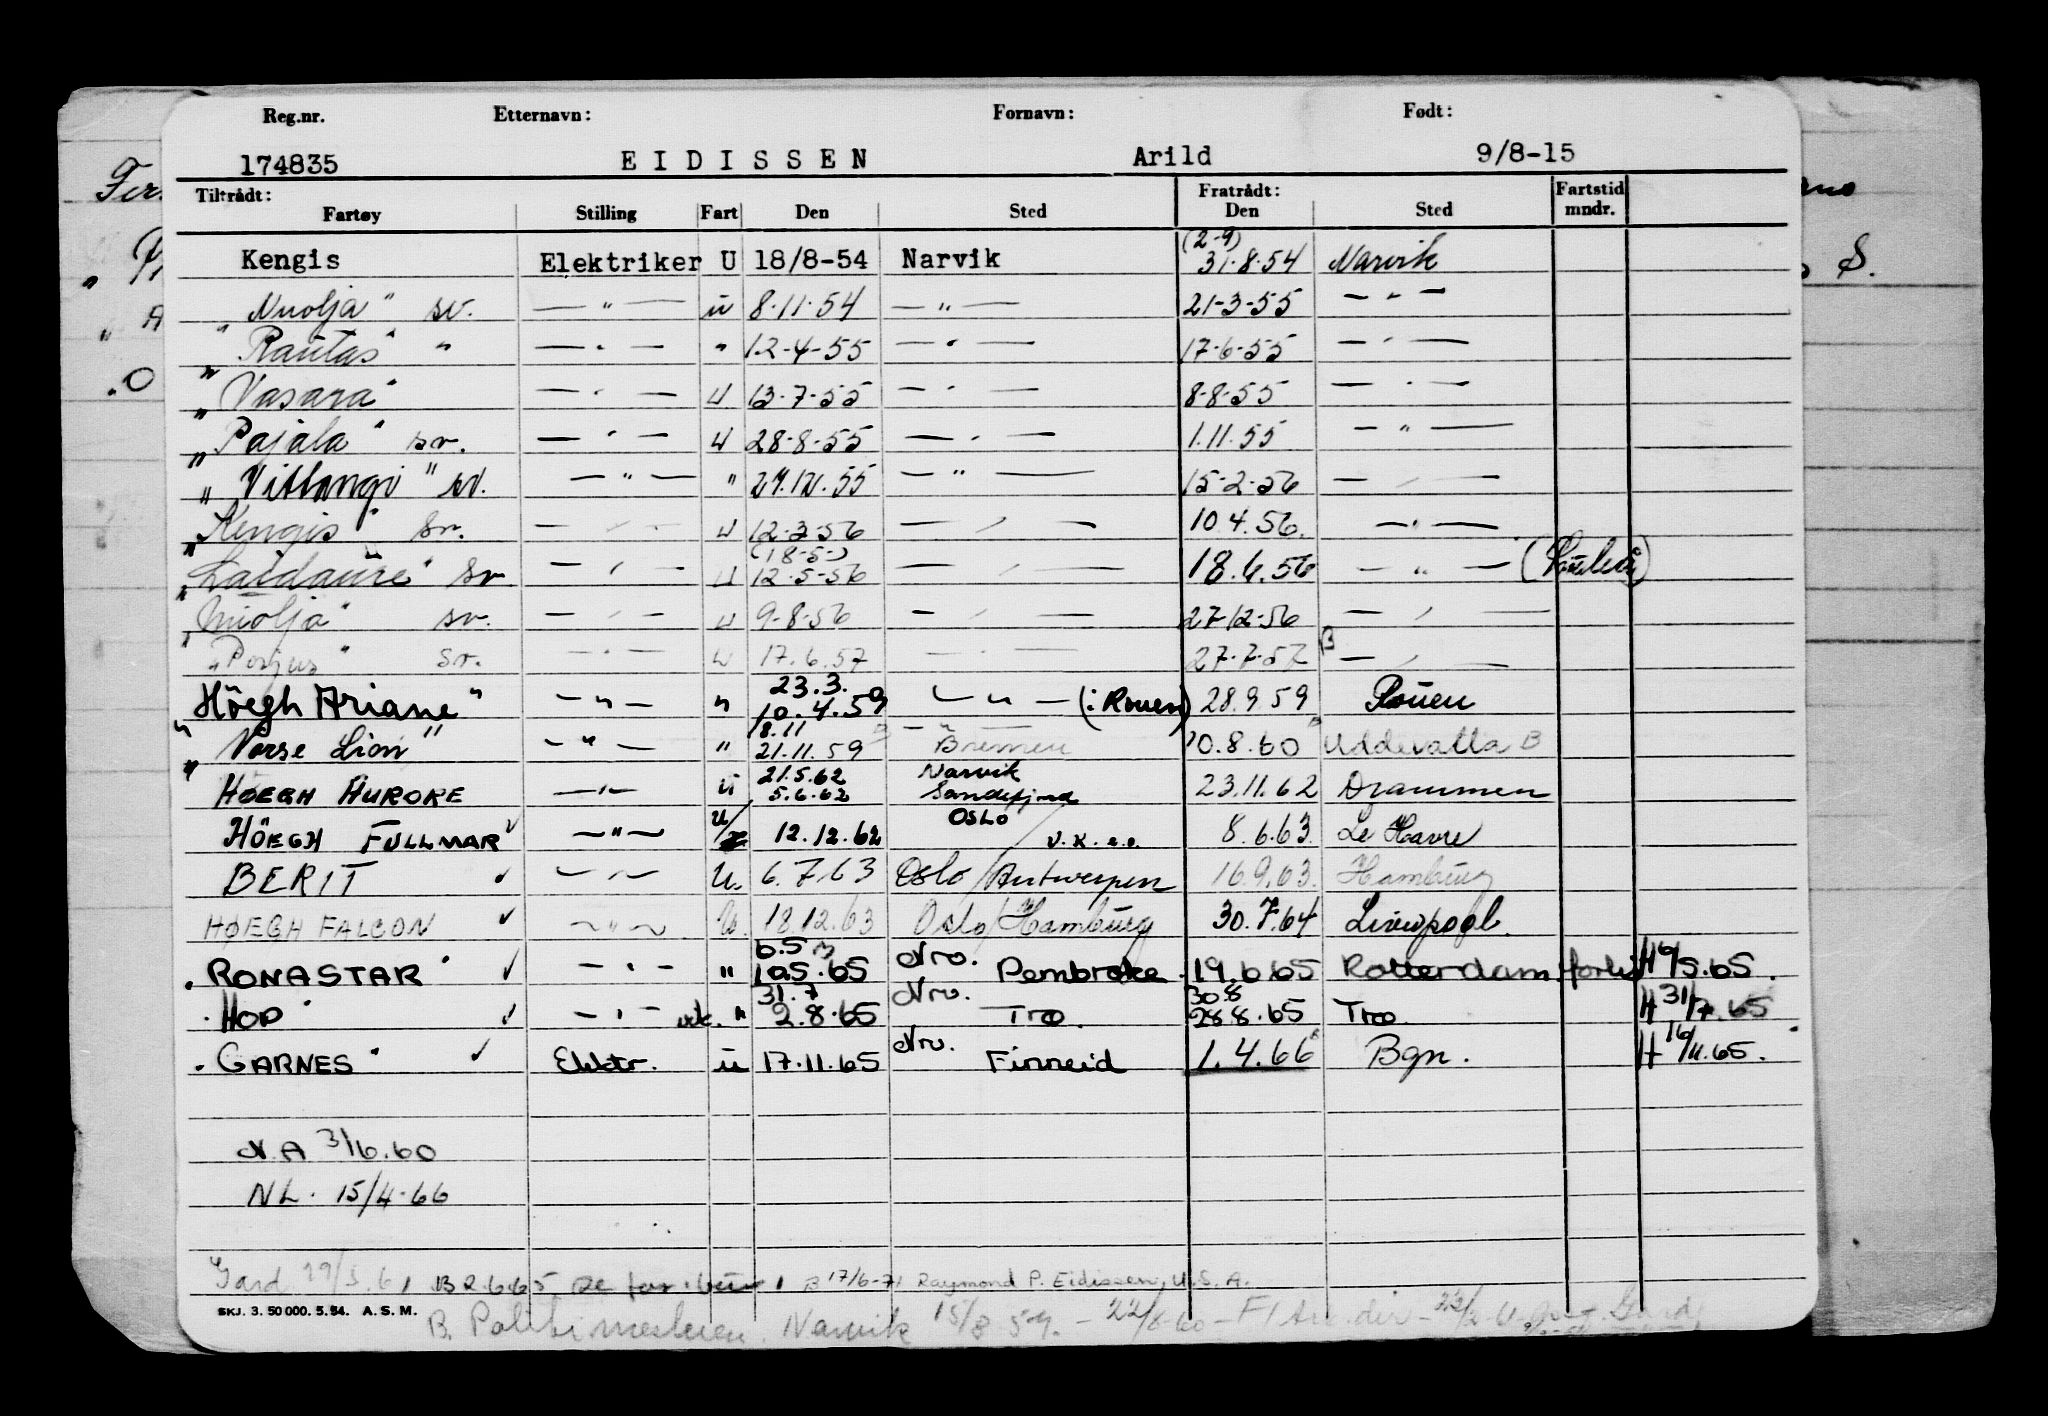 Reg.nr. Etternavn: Fornavn: Født:
174835 EIDISSEN Arild 9/8-15
Tiltrådt: Fratrådt: Fartstid
Fartøy Stilling Fart Den Sted Den Sted mndr.
(2-9)
Kengis Elektriker U 18/8-54 Narvik 31.8.54 Narvik
"Nuolja" sv. — " — u 8.11.54 — " — 21-3-55 — " —
"Rautas" " — " — " 12-4-55 — " — 17-6-55 — " —
"Vasara" — " — u 13-7-55 — " — 8-8-55 — " —
"Pajala" sv. — " — u 28-8-55 — " — 1.11.55 — " —
"Vittangi" sv. — " — " 27.12.55 — " — 15-2-56 — " —
"Kengis" sv. — " — u 12-3-56 — " — 10.4.56. — " —
(18-5-)
"Laidaure" sv — " — u 12-5-56 — " — 18.6.56 — " — (Luleå)
"Nuolja" sv. — " — u 9-8-56 — " — 27-12-56 — " —
"Porjus" sv. — " — u 17.6.57 — " — 27.7.57 B — " —
23.3.
"Höegh Ariane" — " — " 10.4.59 — " — (: Rouen) 28.9.59 Rouen
18.11 — " —
"Norse Lion" — " — " 21.11.59 Bremen 10.8.60 Uddevalla B
21.5.62 Narvik
HØEGH AURORE — " — u 5.6.62 Sandefjord 23.11.62 Drammen
OSLO
HÖEGH FULLMAR ✓ — " — u/ 12.12.62 / v.x.e.o. 8.6.63 Le Havre
BERIT ✓ — " — U. 6.7.63 Oslo/Antwerpen 16.9.63. Hamburg
HØEGH FALCON ✓ — " — U. 18.12.63 Oslo/Hamburg 30.7.64 Liverpool.
6.5 Nrv.
"RONASTAR" ✓ — " — " 10.5.65 Pembroke 19.6.65 Rotterdam H 6/5.65.
31.7 Nrv. 30.8
"HOP" ✓ — " — " 2.8.65 Tro. 28.8.65 Tro H 31/7.65
Nrv.
"GARNES" ✓ Elektr. u 17.11.65 Finneid 1.4.66 Bgn. H 16/11.65.
N.A 3/6.60
NL. 15/4-66
Gard B 2.6.65 B 17/6-71 Raymond P. Eidissen, U.S.A.
SKJ. 3. 50 000. 5. 54. A. S. M.
B. Politimesteren. Narvik 15/8 59. - 22/6-60 -